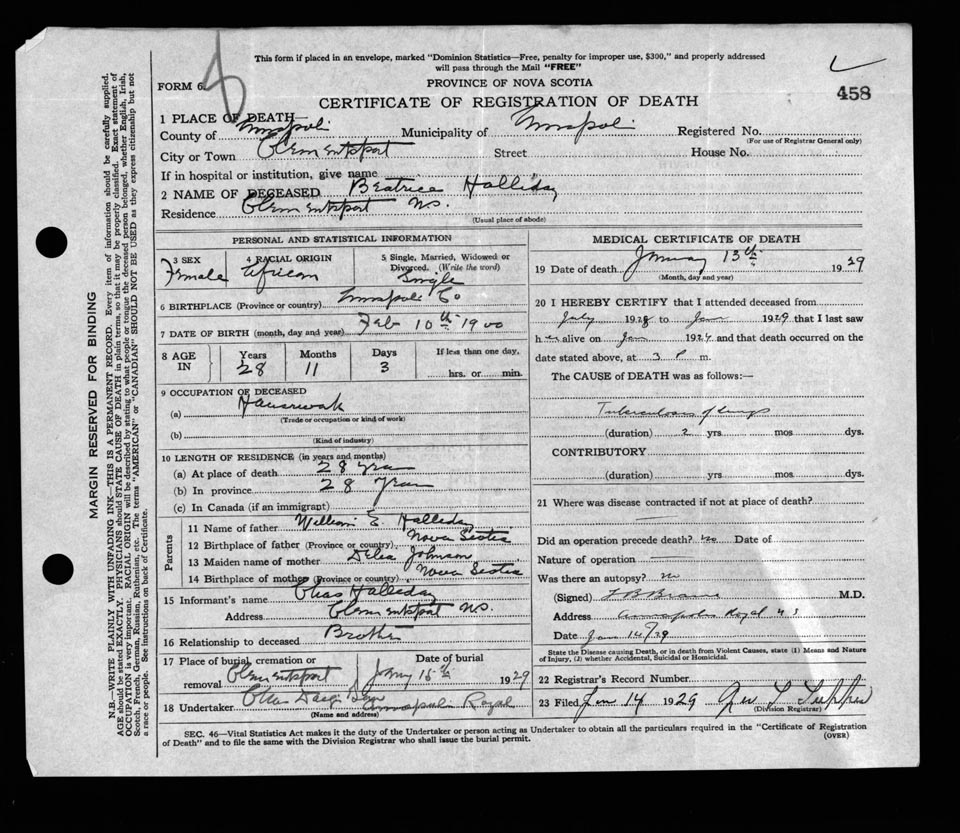 This form if placed in an envelope, marked "Dominion Statistics—Free, penalty for improper use, $300," and properly addressed
will pass through the Mail "FREE"
FORM 6.
PROVINCE OF NOVA SCOTIA
458
CERTIFICATE OF REGISTRATION OF DEATH
1 PLACE OF DEATH—
County of Annapolis Municipality of Annapolis Registered No.
(For use of Registrar General only)
City or Town Clementsport Street House No.
If in hospital or institution, give name
2 NAME OF DECEASED Beatrice Halliday
Residence Clementsport N.S.
(Usual place of abode)
PERSONAL AND STATISTICAL INFORMATION
3 SEX Female
4 RACIAL ORIGIN African
5 Single, Married, Widowed or Divorced. (Write the word) Single
6 BIRTHPLACE (Province or country) Annapolis Co
7 DATE OF BIRTH (month, day and year) Feb 10th 1900
8 AGE IN Years 28 Months 11 Days 3 If less than one day, hrs. or min.
9 OCCUPATION OF DECEASED
(a) Housework
(Trade or occupation or kind of work)
(b)
(Kind of industry)
10 LENGTH OF RESIDENCE (in years and months)
(a) At place of death 28 years
(b) In province 28 years
(c) In Canada (if an immigrant)
Parents
11 Name of father William E. Halliday
12 Birthplace of father (Province or country) Nova Scotia
13 Maiden name of mother Delia Johnson
14 Birthplace of mother (Province or country) Nova Scotia
15 Informant's name Chas Halliday
Address Clementsport N.S.
16 Relationship to deceased Brother
17 Place of burial, cremation or removal Clementsport Date of burial Jany 15th 1929
18 Undertaker Annapolis Royal
(Name and address)
MEDICAL CERTIFICATE OF DEATH
19 Date of death January 13th 1929
(Month, day and year)
20 I HEREBY CERTIFY that I attended deceased from
July 1928 to Jan 1929 that I last saw
her alive on Jan 1929 and that death occurred on the
date stated above, at 3 P m.
The CAUSE of DEATH was as follows:—
Tuberculosis of lungs
(duration) 2 yrs. mos. dys.
CONTRIBUTORY
(duration) yrs. mos. dys.
21 Where was disease contracted if not at place of death?
Did an operation precede death? no Date of
Nature of operation
Was there an autopsy? no
(Signed) M.D.
Address Annapolis Royal N S
Date Jan 14/29
State the Disease causing Death, or in death from Violent Causes, state (1) Means and Nature
of Injury, (2) whether Accidental, Suicidal or Homicidal.
22 Registrar's Record Number
23 Filed Jan 14 1929
(Division Registrar)
SEC. 46—Vital Statistics Act makes it the duty of the Undertaker or person acting as Undertaker to obtain all the particulars required in the "Certificate of Registration
of Death" and to file the same with the Division Registrar who shall issue the burial permit.
(OVER)
MARGIN RESERVED FOR BINDING
N.B.—WRITE PLAINLY WITH UNFADING INK—THIS IS A PERMANENT RECORD. Every item of information should be carefully supplied.
AGE should be stated EXACTLY. PHYSICIANS should STATE CAUSE OF DEATH in plain terms, so that it may be properly classified. Exact statement of
OCCUPATION is very important. RACIAL ORIGIN will be described by stating to what people or tongue the deceased person belonged, whether English, Irish,
Scotch, French, German, Russian, Ruthenian, etc. The terms "AMERICAN" or "CANADIAN" SHOULD NOT BE USED as they express citizenship but not
a race or people. See instructions on back of Certificate.